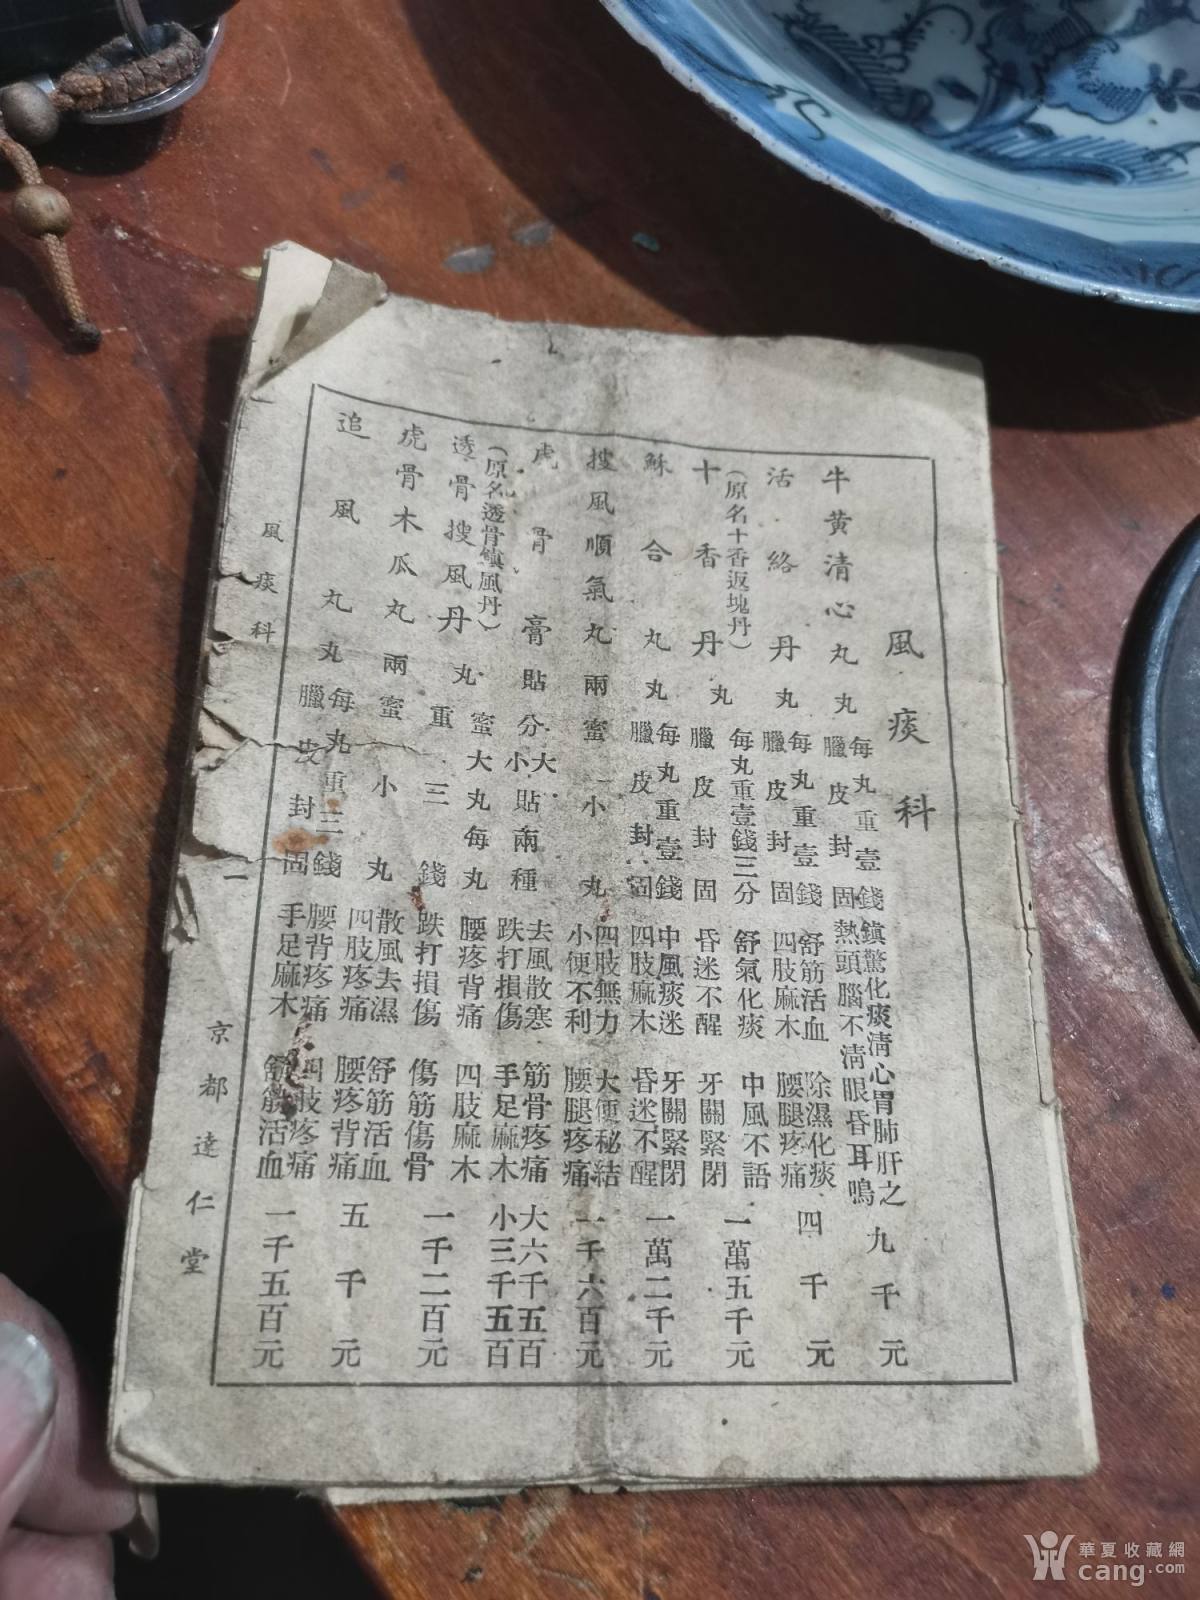 風痰科
牛黄清心丸丸 每丸重壹錢 臘皮封固 鎮驚化痰淸心胃肺肝之熱頭腦不淸眼昏耳鳴 九千元
活絡丹丸 每丸重壹錢 臘皮封固 舒筋活血 四肢麻木 除濕化痰 腰腿疼痛 四千元
(原名十香返塊丹) 每丸重壹錢三分 舒氣化痰 中風不語
十香丹丸 臘皮封固 昏迷不醒 牙關緊閉 一萬五千元
穌合丸丸 每丸重壹錢 臘皮封固 中風痰迷 四肢麻木 牙關緊閉 昏迷不醒 一萬二千元
搜風順氣丸兩蜜小丸 四肢無力 小便不利 大便秘結 腰腿疼痛 一千六百元
虎骨膏貼分大小貼兩種 去風散寒 跌打損傷 筋骨疼痛 手足麻木 大六千五百 小三千五百
(原名透骨鎮風丹) 蜜大丸每丸 腰疼背痛 四肢麻木
透骨搜風丹丸重三錢 跌打損傷 傷筋傷骨 一千二百元
虎骨木瓜丸兩蜜小丸 散風去濕 四肢疼痛 舒筋活血 腰疼背痛 五千元
追風丸丸 每丸重三錢 臘皮封固 腰背疼痛 手足麻木 四肢疼痛 舒筋活血 一千五百元
風痰科
一
京都達仁堂
華夏收藏網
cang.com